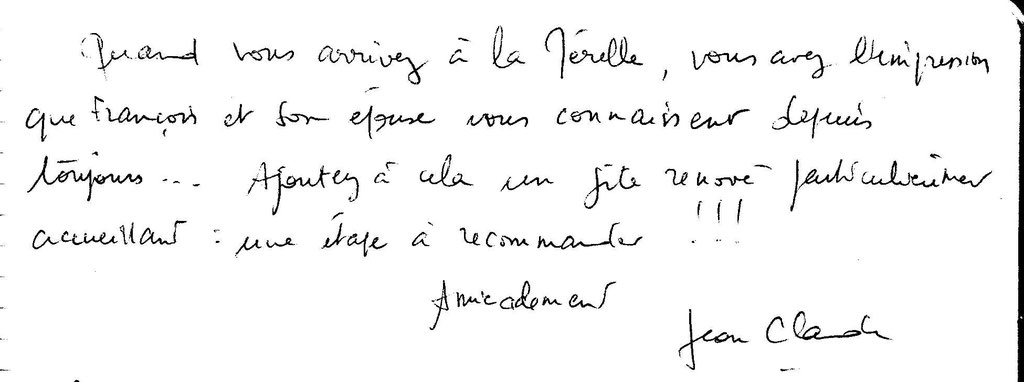 Quand vous arrivez à la Jérelle, vous avez l'impression
que François et son épouse vous connaissent depuis
toujours... Ajoutez à cela un gîte rénové particulièrement
accueillant : une étape à recommander !!!
Amicalement
Jean Claude